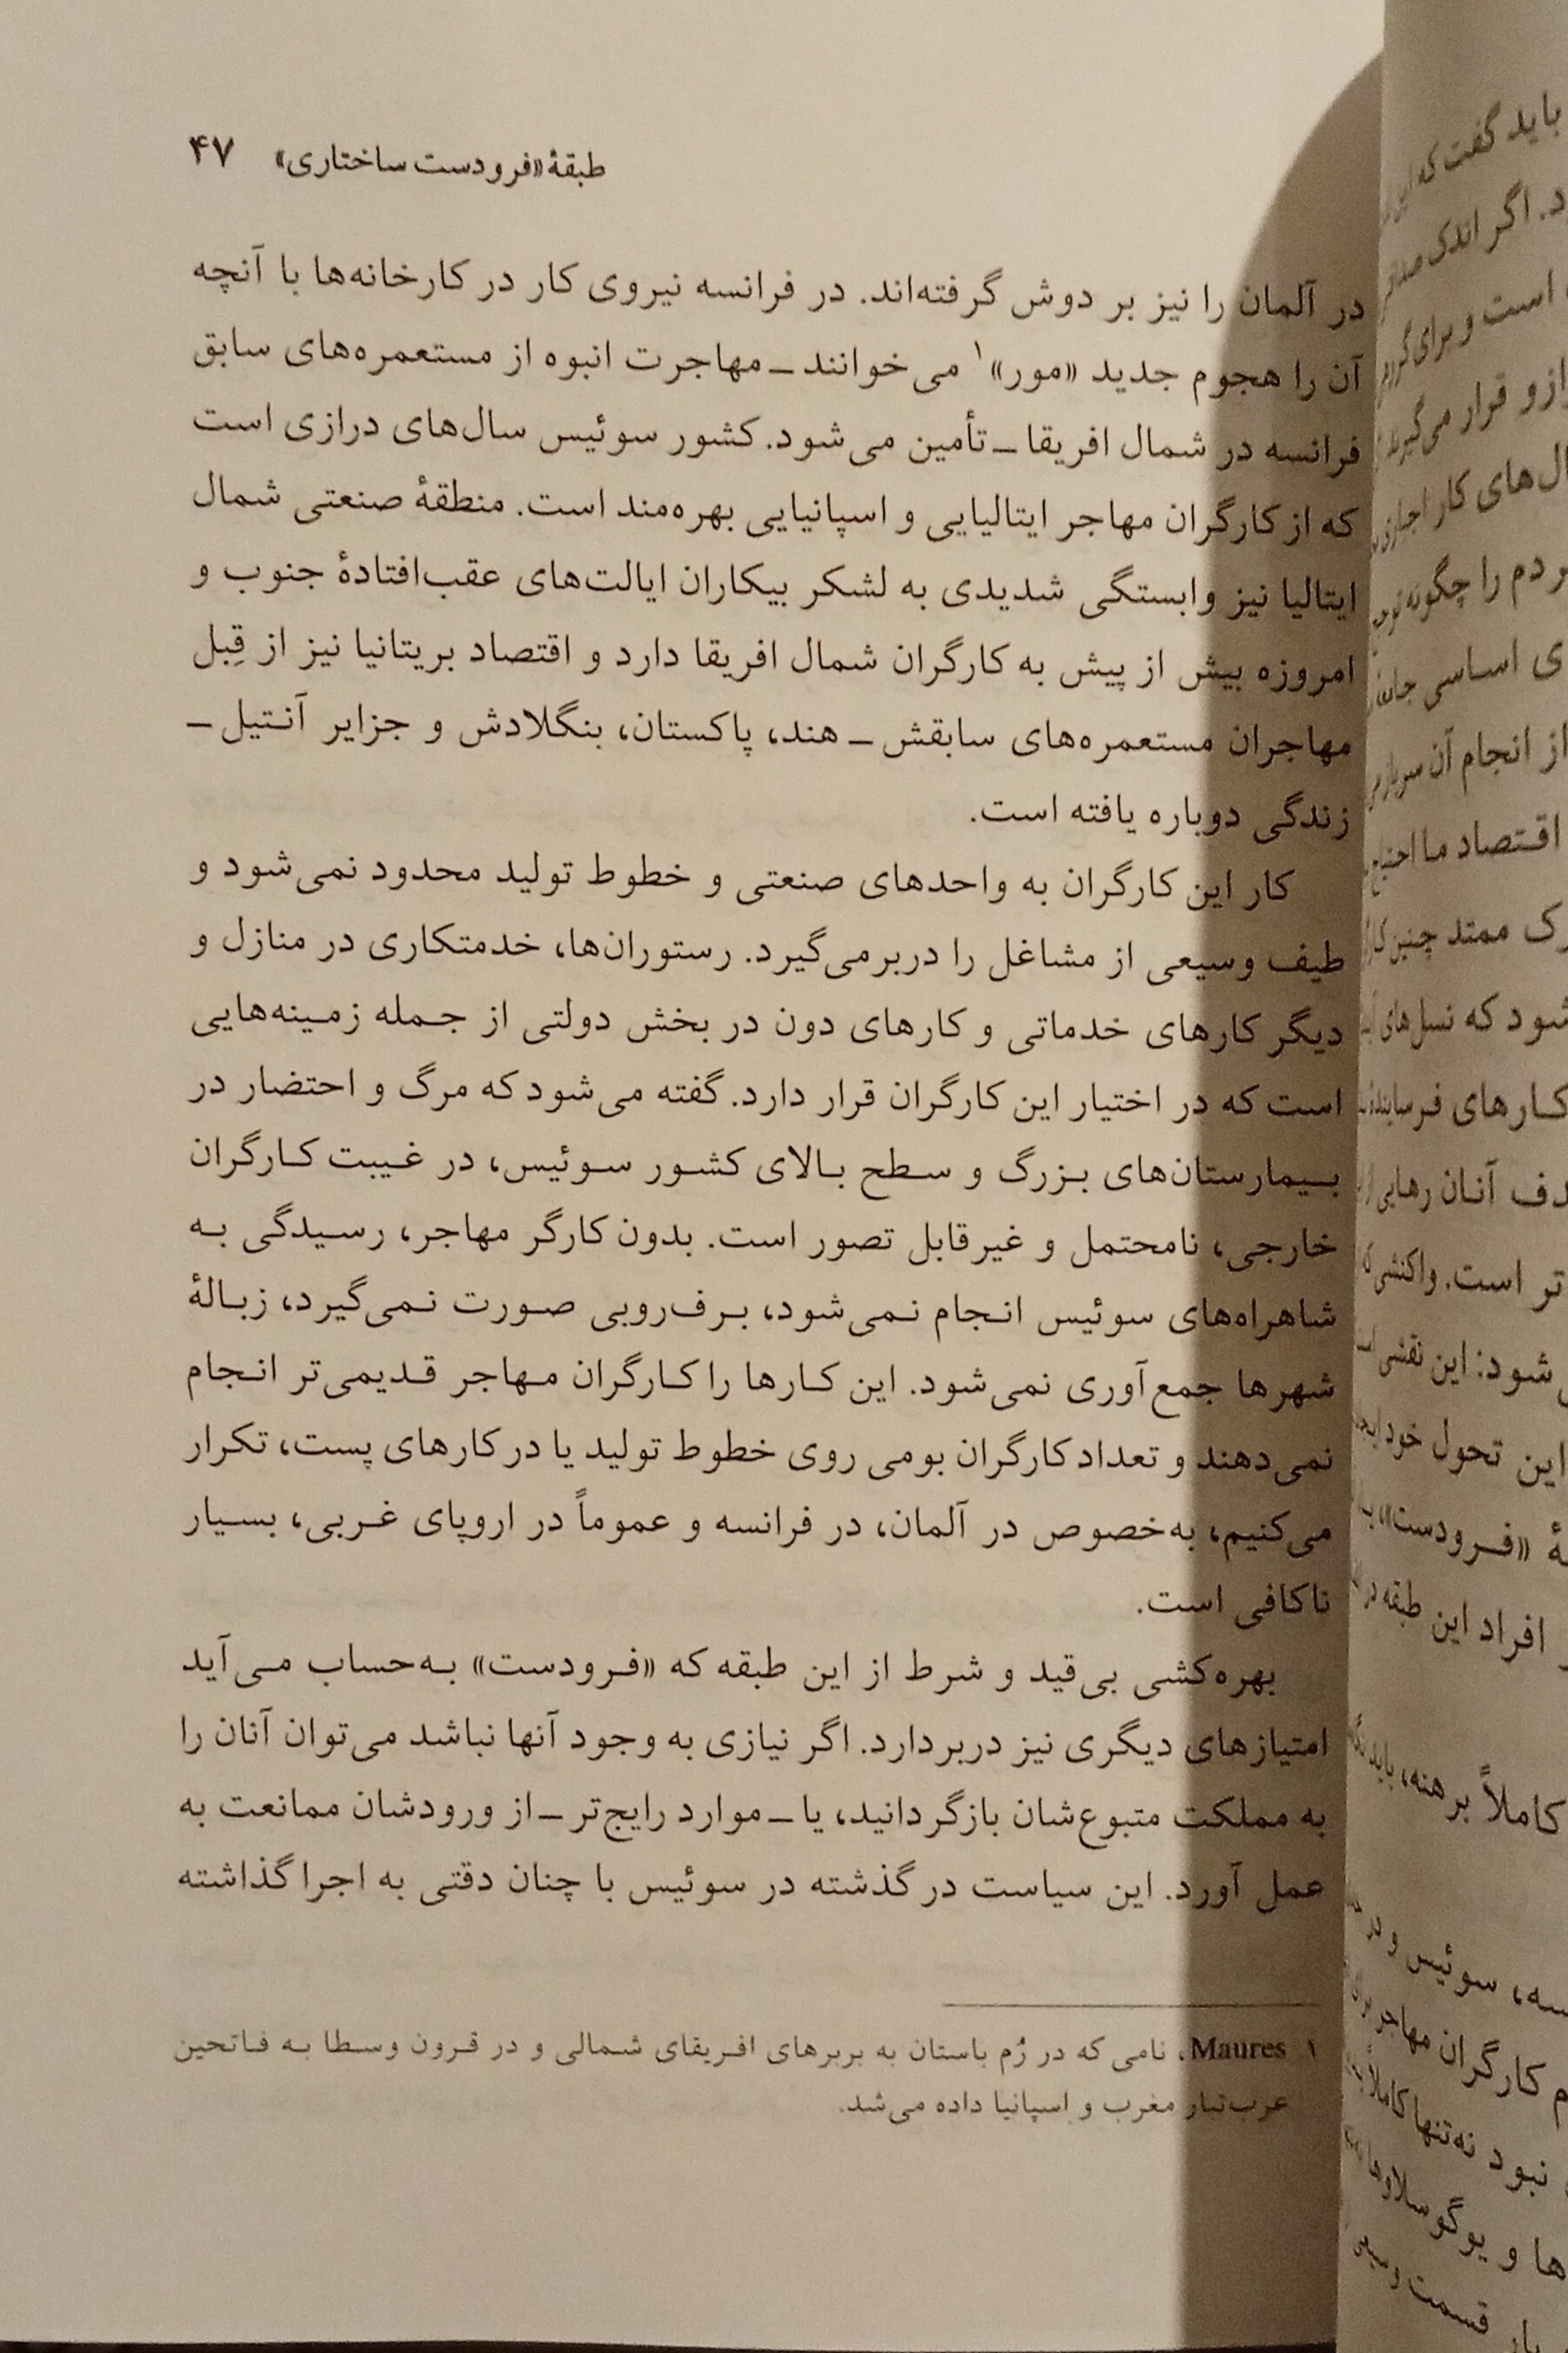 طبقهٔ «فرودست ساختاری» ۴۷
در آلمان را نیز بر دوش گرفته‌اند. در فرانسه نیروی کار در کارخانه‌ها با آنچه
آن را هجوم جدید «مور»۱ می‌خوانند ـ مهاجرت انبوه از مستعمره‌های سابق
فرانسه در شمال افریقا ـ تأمین می‌شود. کشور سوئیس سال‌های درازی است
که از کارگران مهاجر ایتالیایی و اسپانیایی بهره‌مند است. منطقهٔ صنعتی شمال
ایتالیا نیز وابستگی شدیدی به لشکر بیکاران ایالت‌های عقب‌افتادهٔ جنوب و
امروزه بیش از پیش به کارگران شمال افریقا دارد و اقتصاد بریتانیا نیز از قِبل
مهاجران مستعمره‌های سابقش ـ هند، پاکستان، بنگلادش و جزایر آنتیل ـ
زندگی دوباره یافته است.
کار این کارگران به واحدهای صنعتی و خطوط تولید محدود نمی‌شود و
طیف وسیعی از مشاغل را دربرمی‌گیرد. رستوران‌ها، خدمتکاری در منازل و
دیگر کارهای خدماتی و کارهای دون در بخش دولتی از جمله زمینه‌هایی
است که در اختیار این کارگران قرار دارد. گفته می‌شود که مرگ و احتضار در
بیمارستان‌های بزرگ و سطح بالای کشور سوئیس، در غیبت کارگران
خارجی، نامحتمل و غیرقابل تصور است. بدون کارگر مهاجر، رسیدگی به
شاهراه‌های سوئیس انجام نمی‌شود، برف‌روبی صورت نمی‌گیرد، زبالهٔ
شهرها جمع‌آوری نمی‌شود. این کارها را کارگران مهاجر قدیمی‌تر انجام
نمی‌دهند و تعداد کارگران بومی روی خطوط تولید یا در کارهای پست، تکرار
می‌کنیم، به‌خصوص در آلمان، در فرانسه و عموماً در اروپای غربی، بسیار
ناکافی است.
بهره‌کشی بی‌قید و شرط از این طبقه که «فرودست» به‌حساب می‌آید
امتیازهای دیگری نیز دربردارد. اگر نیازی به وجود آنها نباشد می‌توان آنان را
به مملکت متبوع‌شان بازگردانید، یا ـ موارد رایج‌تر ـ از ورودشان ممانعت به
عمل آورد. این سیاست در گذشته در سوئیس با چنان دقتی به اجرا گذاشته
۱ Maures، نامی که در رُم باستان به بربرهای افریقای شمالی و در قرون وسطا به فاتحین
عرب‌تبار مغرب و اسپانیا داده می‌شد.
باید گفت که
د. اگر اندک
است و برای
قرار می‌گیرند
ال‌های کار اجباری
ردم را چگونه
ی اساسی
از انجام آن
اقتصاد ما احتیاج
رک ممتد چنین
شود که نسل‌های
کارهای
دف آنان رهایی
تر است. واکنشی
شود: این نقشی
این تحول خود
هٔ «فرودست»
افراد این طبقه در
کاملاً برهنه، باید
سه، سوئیس و در
م کارگران مهاجر
نبود نه‌تنها کاملاً
ها و یوگوسلاوها
قسمت وسیعی